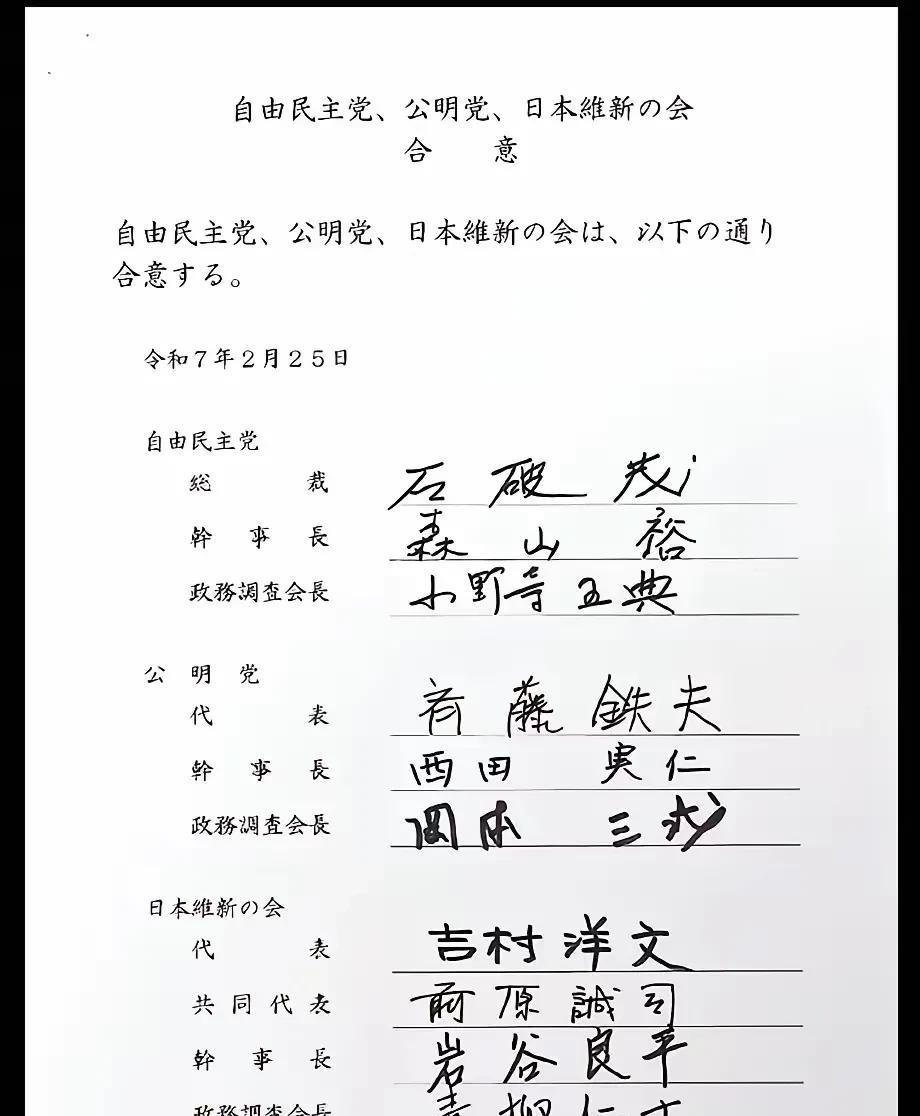 自由民主党、公明党、日本維新の会
合 意
自由民主党、公明党、日本維新の会は、以下の通り
合意する。
令和7年2月25日
自由民主党
総裁 石破茂
幹事長 森山裕
政務調査会長 小野寺五典
公明党
代表 斉藤鉄夫
幹事長 西田実仁
政務調査会長 岡本三成
日本維新の会
代表 吉村洋文
共同代表 前原誠司
幹事長 岩谷良平
政務調査会長 青柳仁士